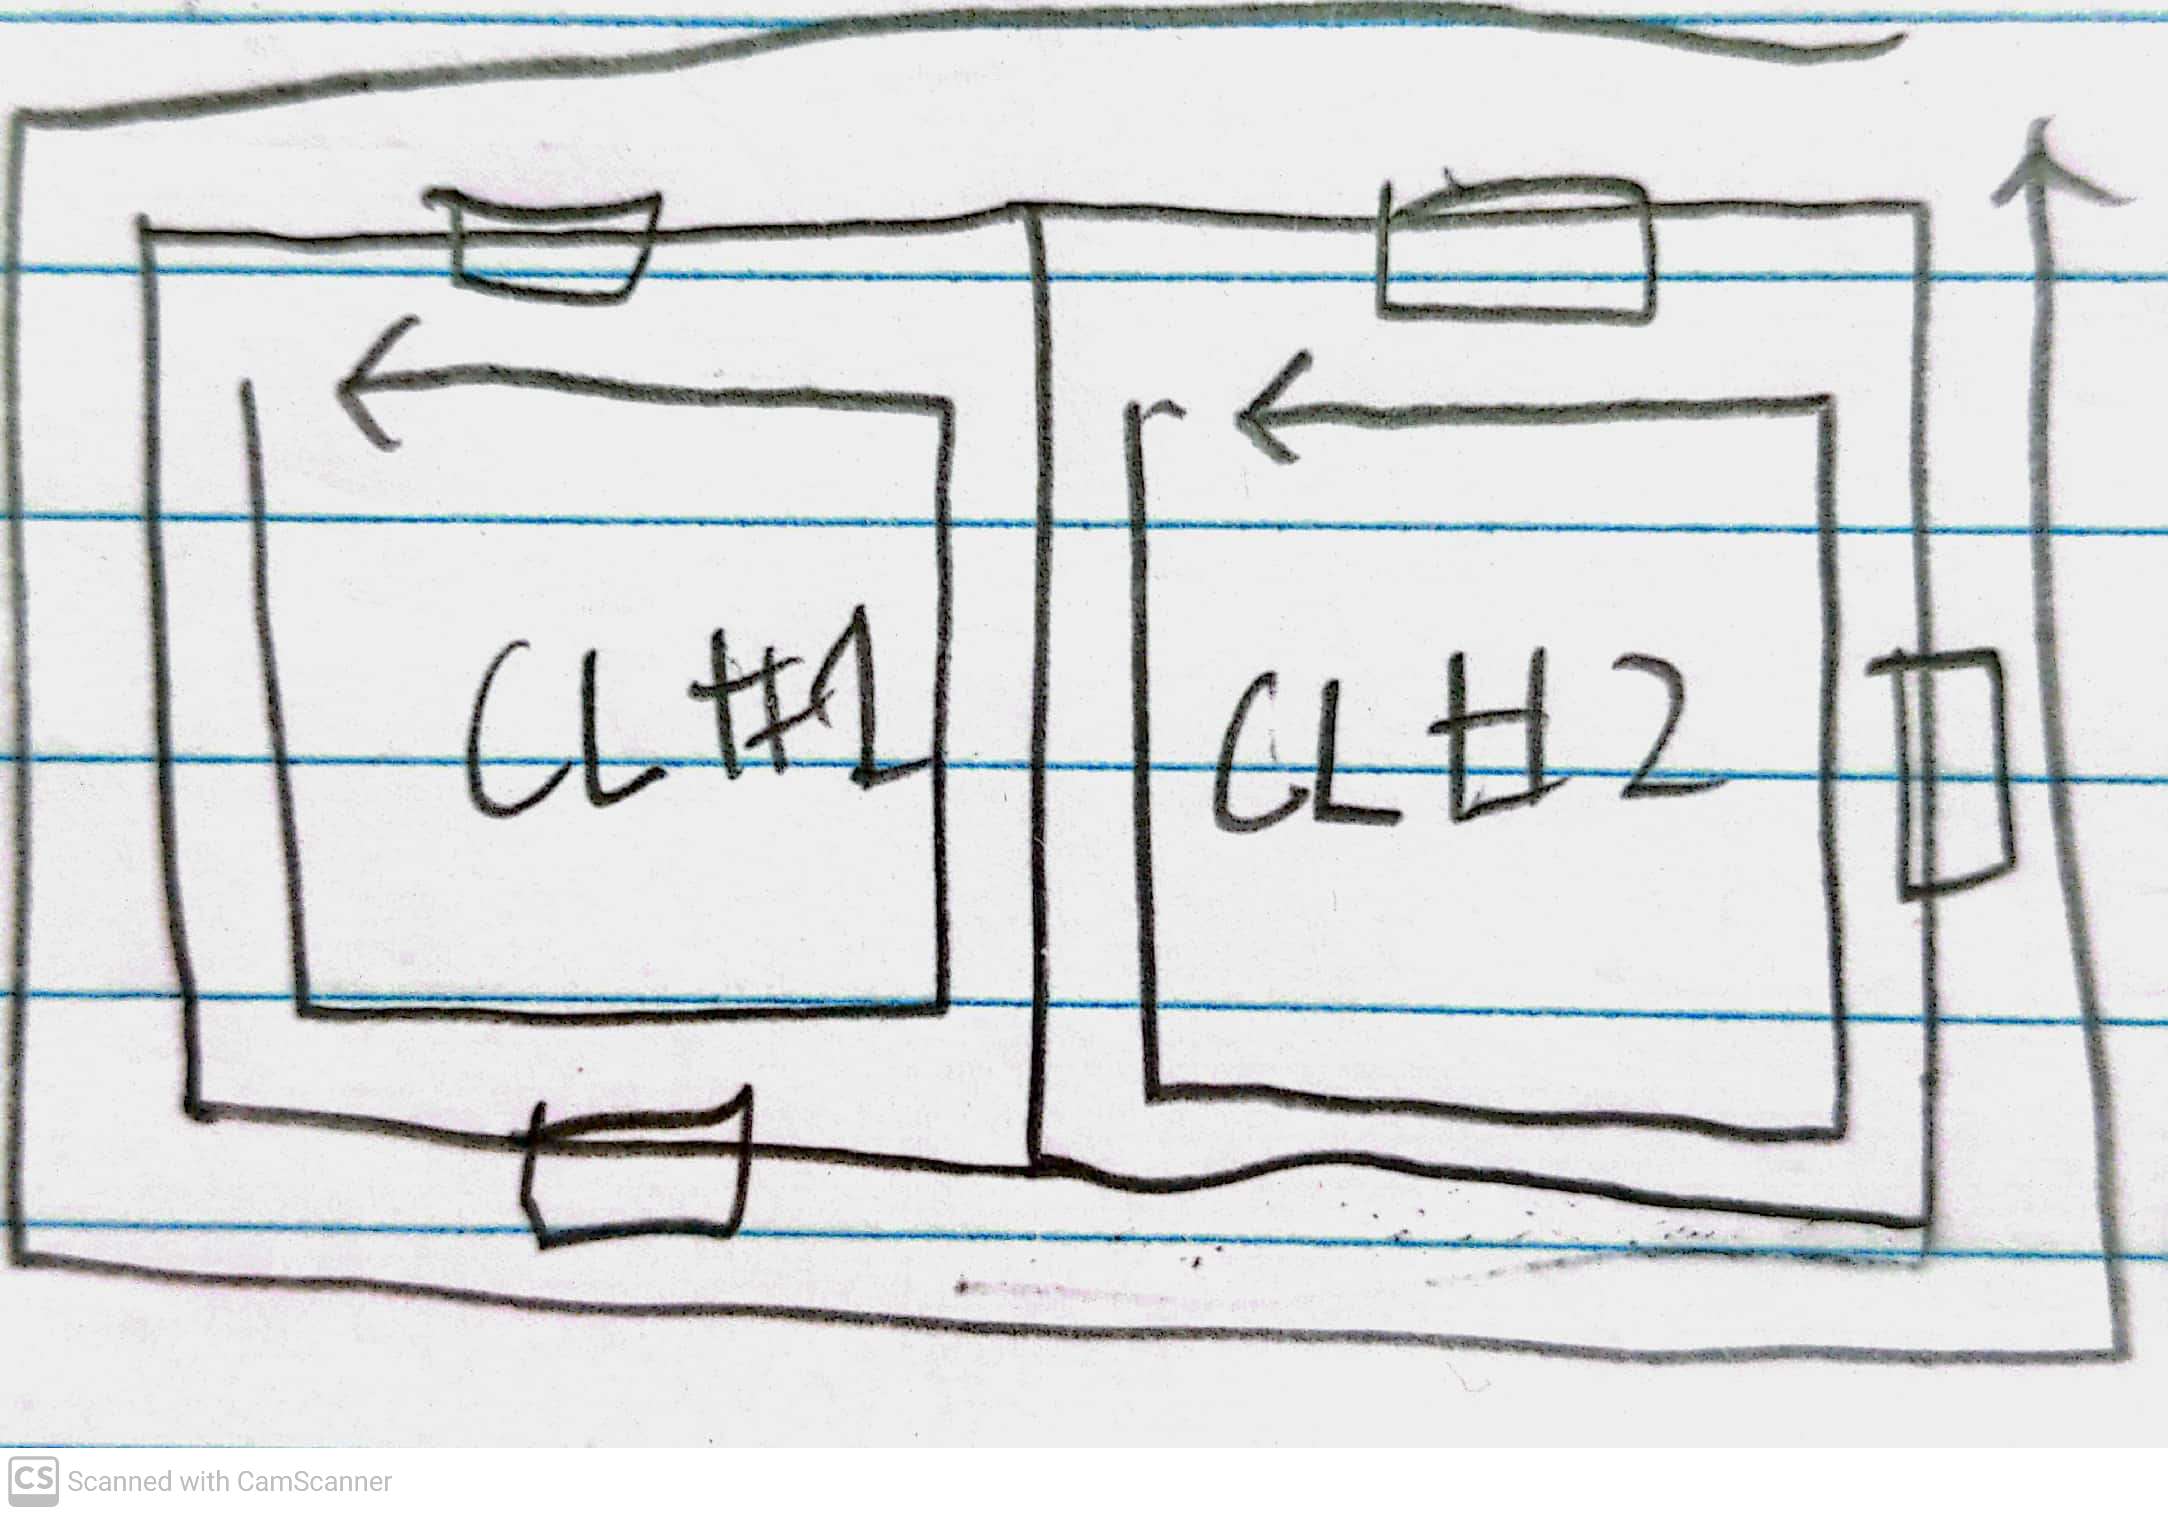 CL #1
CL # 2
CS Scanned with CamScanner